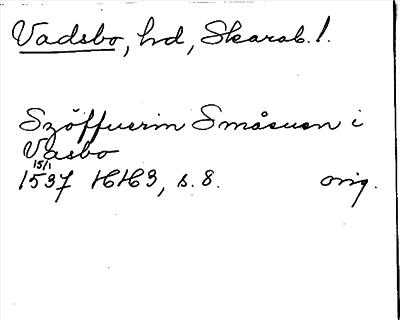 Vadsbo, hd, Skarab. l.
Szöffuerin Småsuen i
Vasbo
15/1
1537 HH3, s. 8. orig.